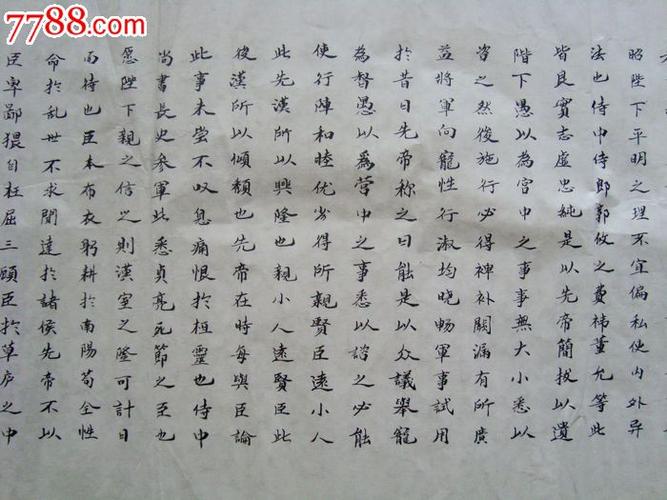 7788.com
昭陛下平明之理不宜偏私使内外异
法也侍中侍郎郭攸之費祎董允等此
皆良實志慮忠純是以先帝簡拔以遺
階下愚以為宫中之事事無大小悉以
咨之然後施行必得裨補闕漏有所廣
益將軍向寵性行淑均曉暢軍事試用
於昔日先帝称之曰能是以众議舉寵
為督愚以爲營中之事悉以諮之必能
使行陣和睦优劣得所親賢臣遠小人
此先漢所以興隆也親小人遠賢臣此
後漢所以傾頹也先帝在時每與臣論
此事未嘗不叹息痛恨於桓靈也侍中
尚書長史參軍此悉貞亮死節之臣也
愿陛下親之信之則漢室之隆可計日
而待也臣本布衣躬耕於南陽苟全性
命於乱世不求聞達於諸侯先帝不以
臣卑鄙猥自枉屈三顧臣於草庐之中